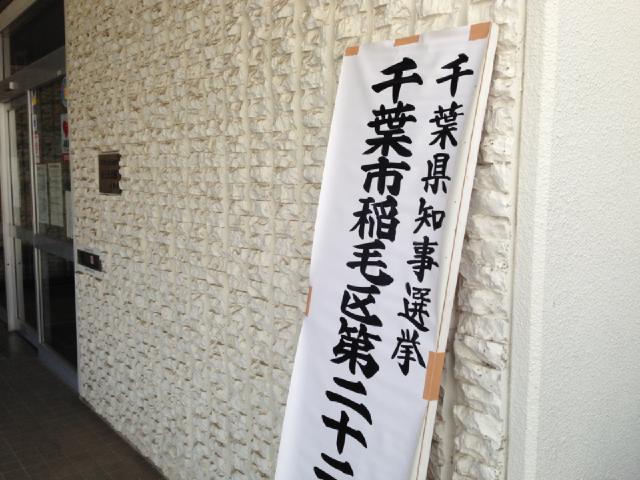 千葉県知事選挙
千葉市稲毛区第二十二